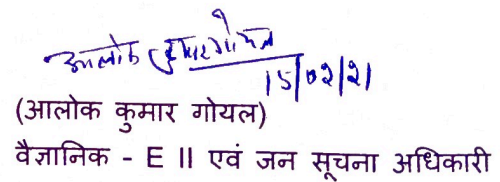 आलोक कुमार गोयल
15/02/21
(आलोक कुमार गोयल)
वैज्ञानिक - E II एवं जन सूचना अधिकारी